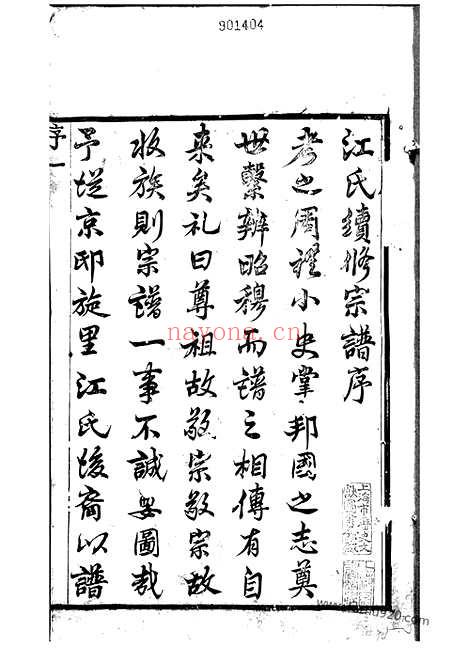 901404
江氏續修宗譜序
考之周禮小史掌邦國之志奠
世繫辨昭穆而譜之相傳有自
來矣礼曰尊祖故敬宗敬宗故
收族則宗譜一事不誠要圖哉
予從京邸旋里江氏後裔以譜
序一
nayona.cn